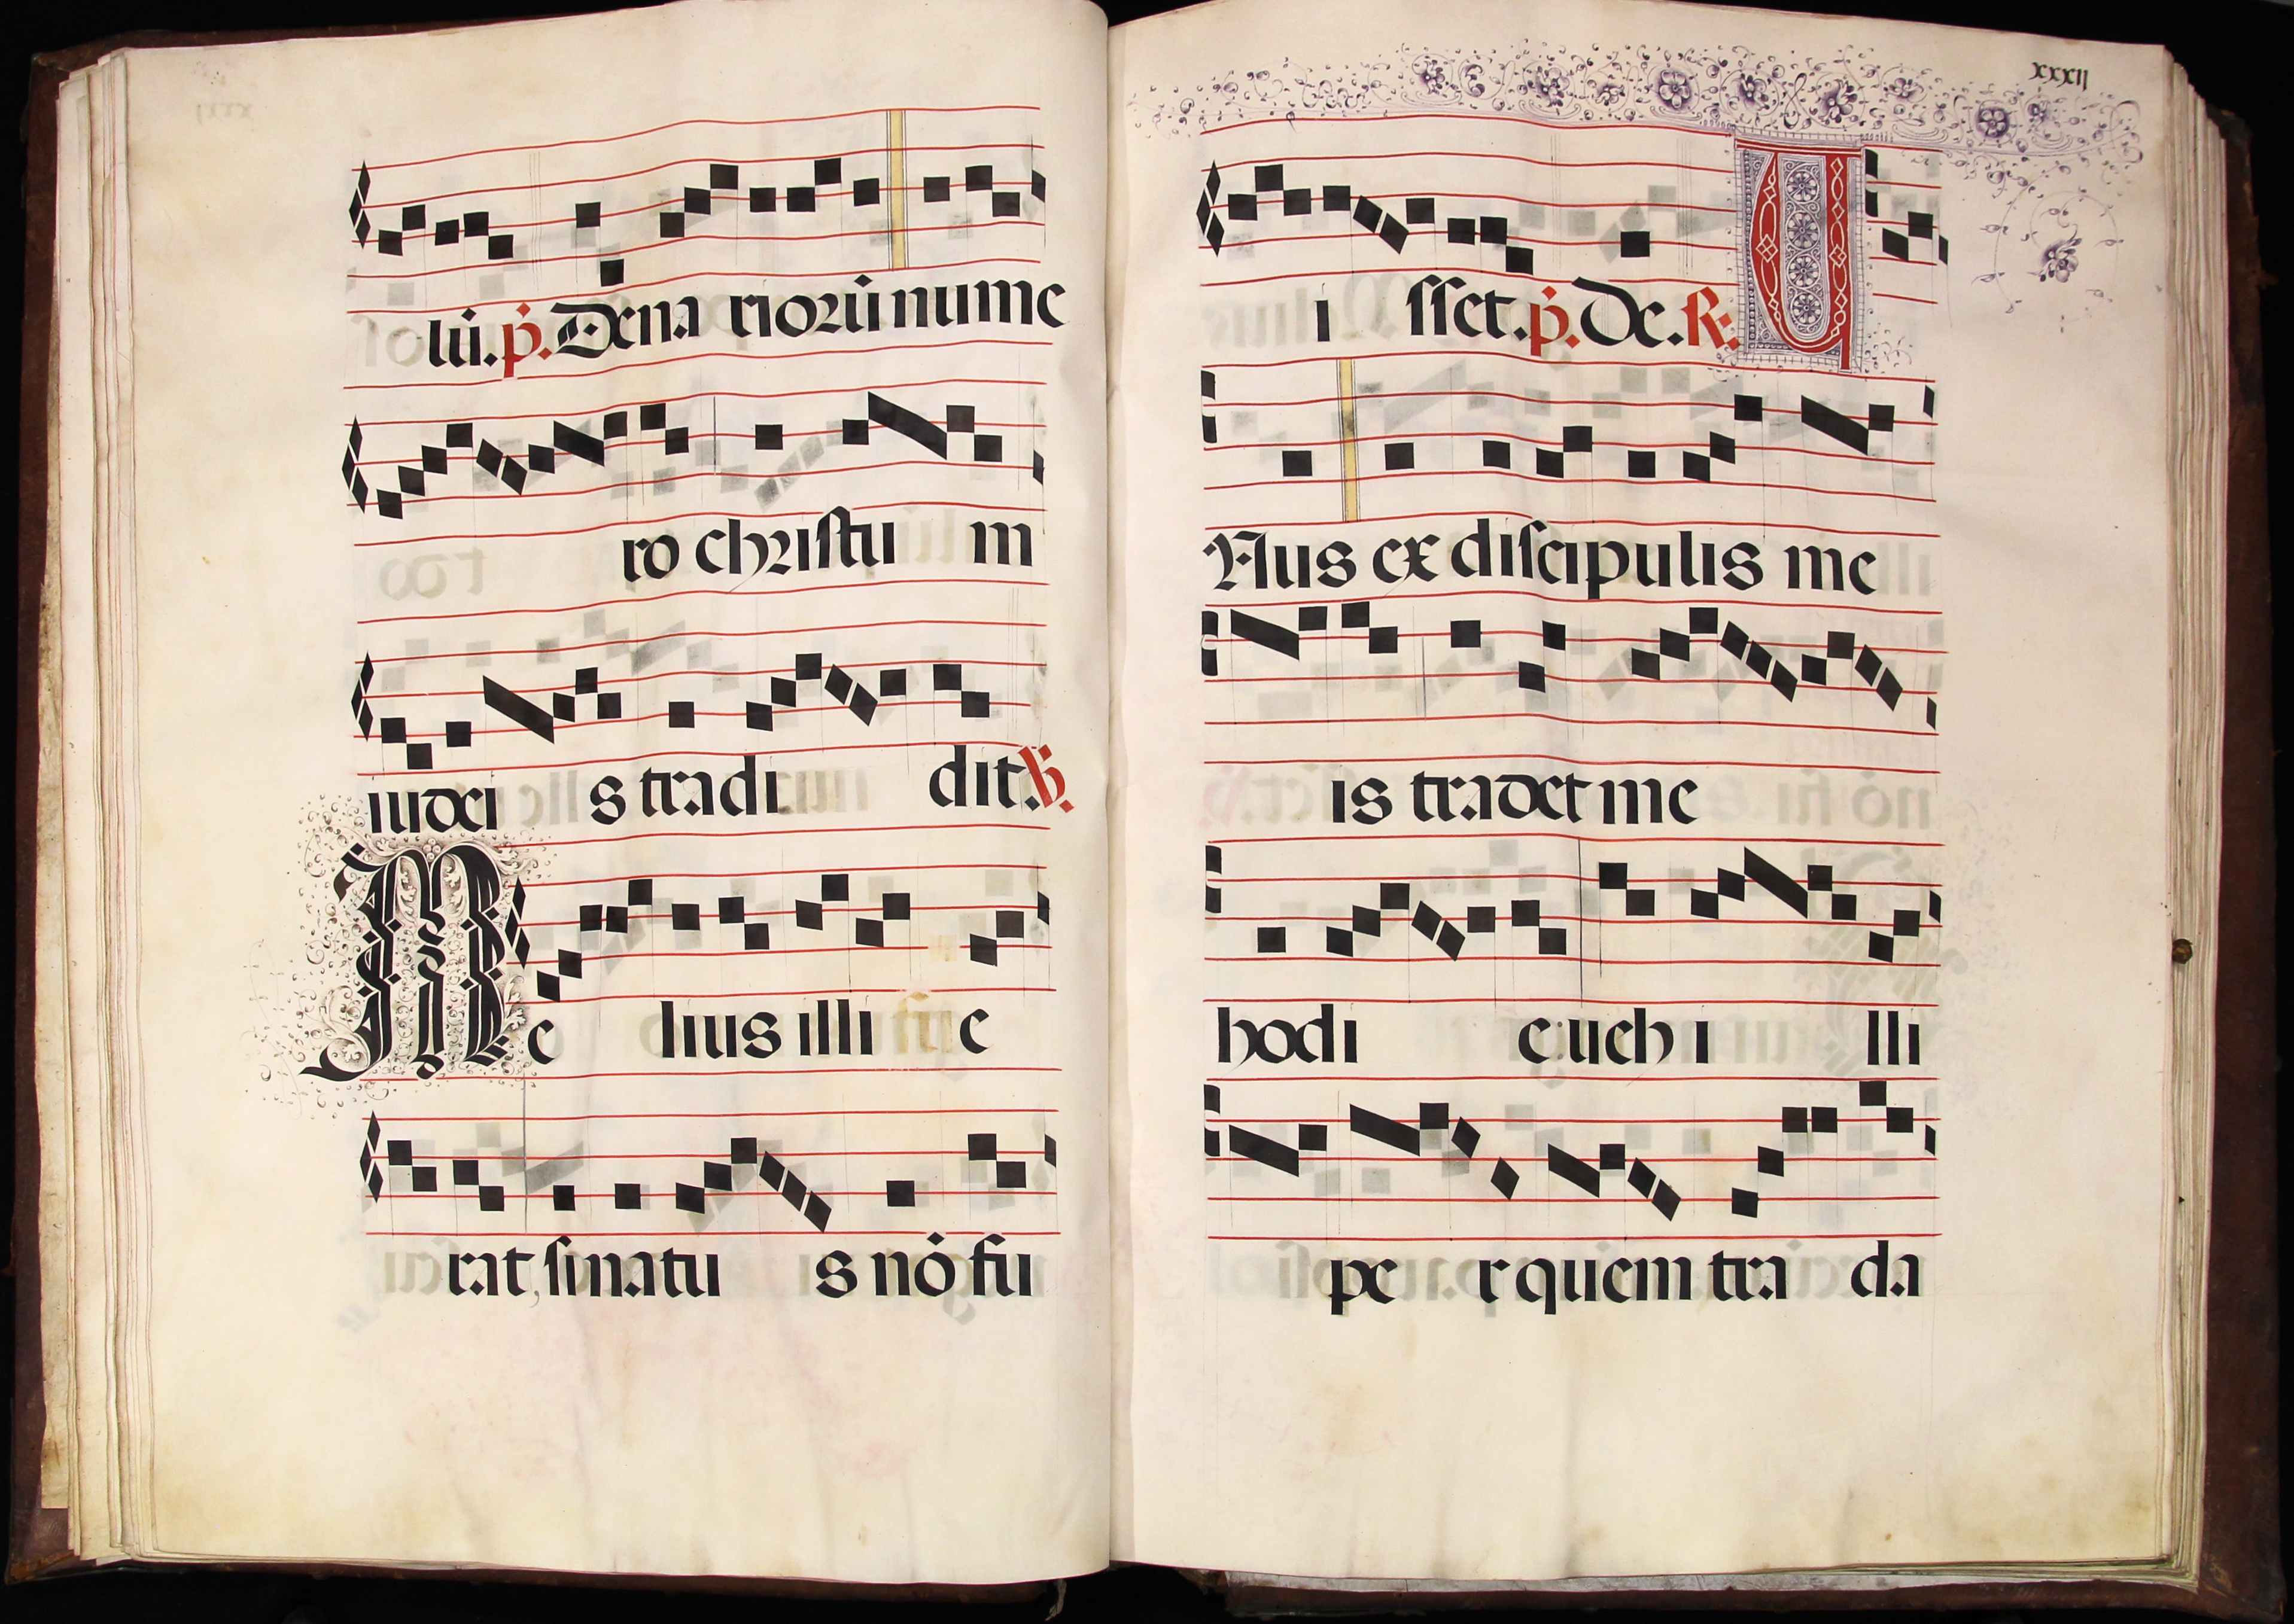 lū. p̄. Dena riorū nume
ro christu m
iudei s tradi dit. ℣.
Me lius illi e
rat, si natu s nō fu
xxxij
i sset. p̄. De. ℟. U
Nus ex discipulis me
is tradet me
hodi e: ueh i lli
pe r quem tra da